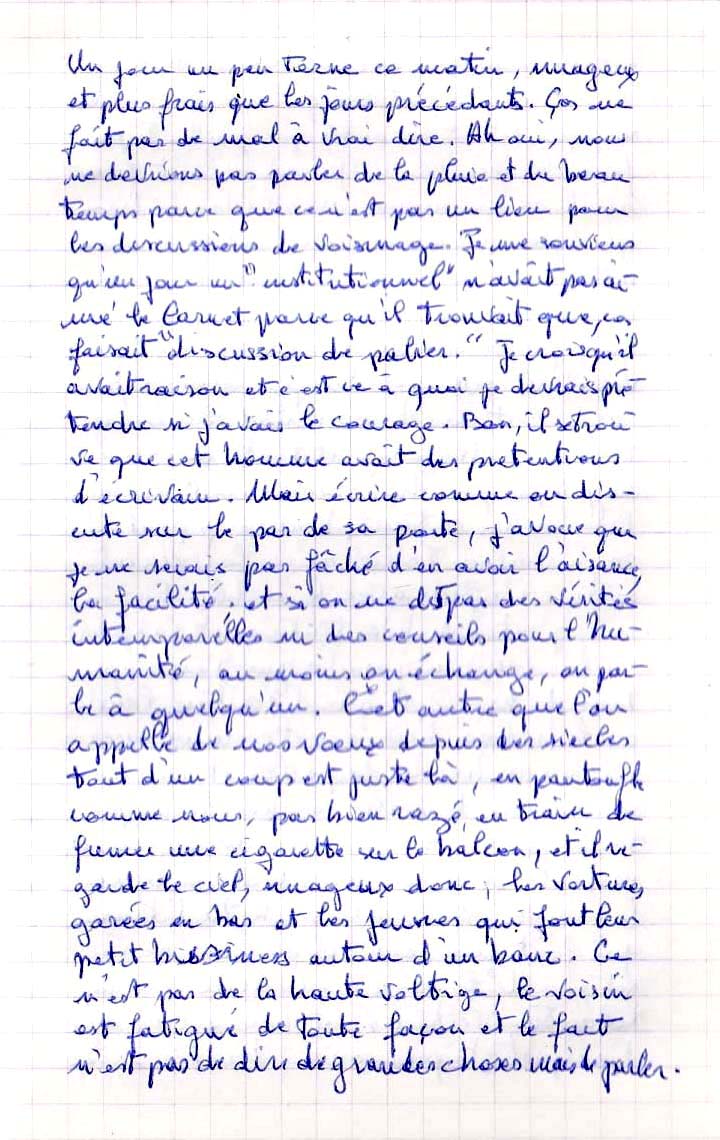 Un jour un peu terne ce matin, nuageux
et plus frais que les jours précédants. Ças ne
fait pas de mal à vrai dire. Ah oui, nous
ne devrions pas parler de la pluie et du beau
temps parce que ce n'est pas un lieu pour
les discussions de voisinage. Je me souviens
qu'un jour un "institutionnel" n'avait pas ai-
mé le Carnet parce qu'il trouvait que, ça
faisait "discussion de palier." Je crois qu'il
avait raison et c'est ce à quoi je devrais pré-
tendre si j'avais le courage. Bon, il se trou-
ve que cet homme avait des pretentions
d'écrivain. Mais écrire comme on dis-
cute sur le pas de sa porte, j'avoue que
je ne serais pas fâché d'en avoir l'aisance,
la facilité, et si on ne dit pas des vérités
intemporelles ni des conseils pour l'hu-
manité, au moins on échange, on par-
le à quelqu'un. Cet autre que l'on
appelle de nos vœux depuis des siècles
tout d'un coup est juste là, en pantoufle
comme nous, pas bien razé, en train de
fumer une cigarette sur le balcon, et il re-
garde le ciel, nuageux donc, les voitures,
garées en bas et les jeunes qui font leur
petit bissiness autour d'un banc. Ce
n'est pas de la haute voltige, le voisin
est fatigué de toute façon et le fait
n'est pas de dire de grandes choses mais de parler.